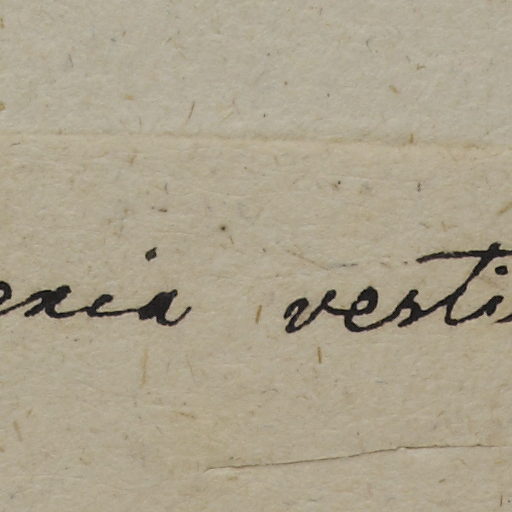 exia vesti